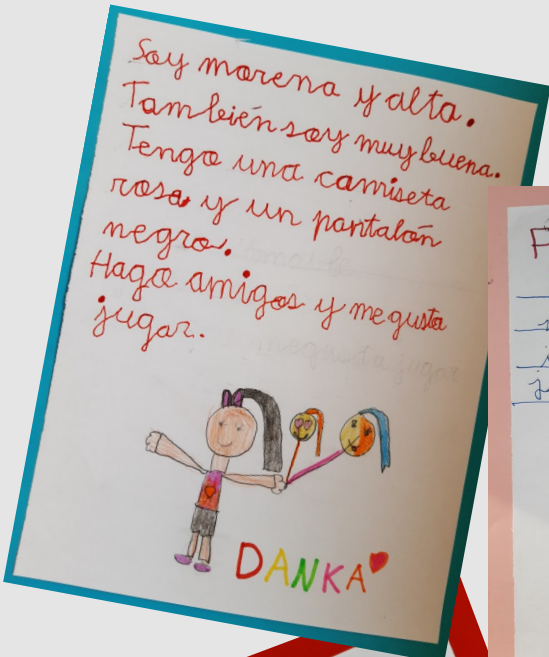 Soy morena y alta.
También soy muy buena.
Tengo una camiseta
rosa y un pantalón
negro.
Hago amigos y me gusta
jugar.
DANKA